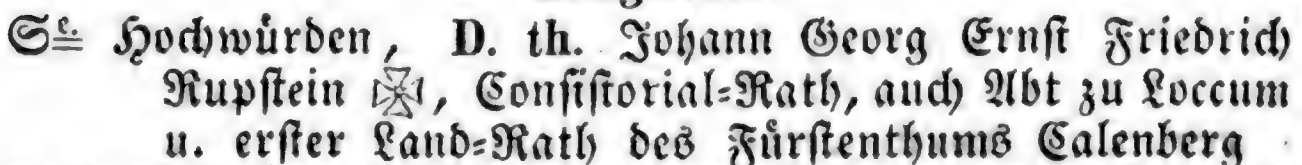 Se. Hochwürden, D. th. Johann Georg Ernst Friedrich
Rupstein ✠, Consistorial-Rath, auch Abt zu Loccum
u. erster Land-Rath des Fürstenthums Calenberg